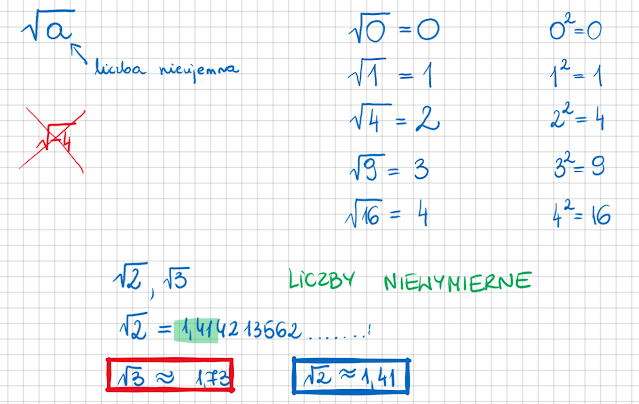 √a
liczba nieujemna
√-4
√0 = 0 0² = 0
√1 = 1 1² = 1
√4 = 2 2² = 4
√9 = 3 3² = 9
√16 = 4 4² = 16
√2, √3 LICZBY NIEWYMIERNE
√2 = 1,414213562.......
√3 ≈ 1,73 √2 ≈ 1,41